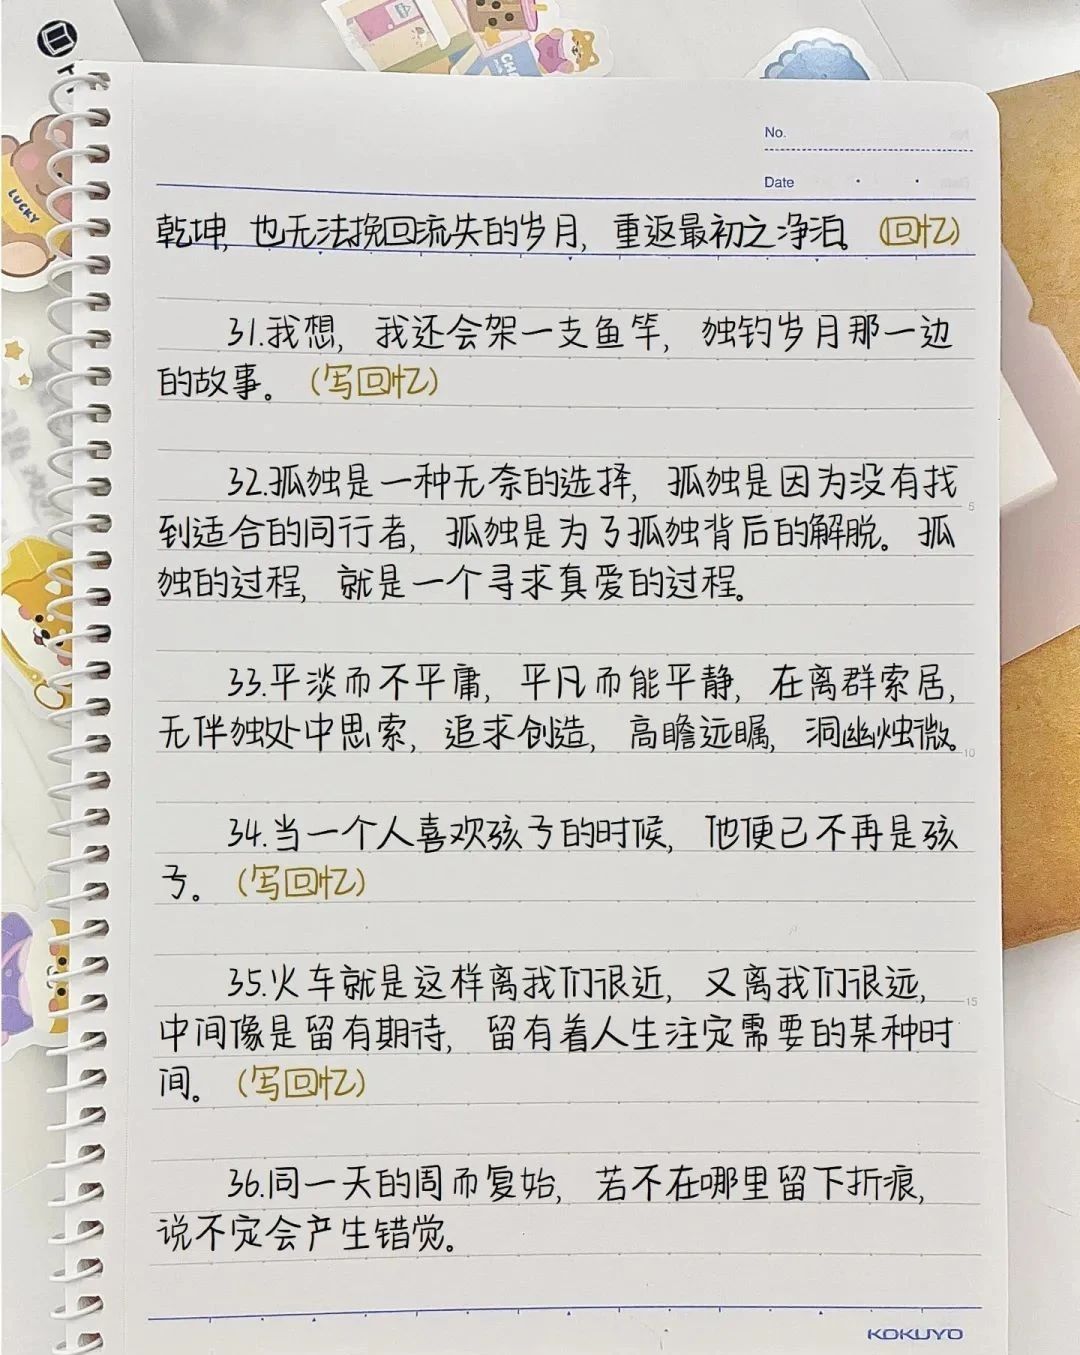 No.
Date
乾坤，也无法挽回流失的岁月，重返最初之净泊。（回忆）
31.我想，我还会架一支鱼竿，独钓岁月那一边
的故事。（写回忆）
32.孤独是一种无奈的选择，孤独是因为没有找
到适合的同行者，孤独是为了孤独背后的解脱。孤
独的过程，就是一个寻求真爱的过程。
5
33.平淡而不平庸，平凡而能平静，在离群索居，
无伴独处中思索，追求创造，高瞻远瞩，洞幽烛微。
10
34.当一个人喜欢孩子的时候，他便已不再是孩
子。（写回忆）
35.火车就是这样离我们很近，又离我们很远，
15
中间像是留有期待，留有着人生注定需要的某种时
间。（写回忆）
36.同一天的周而复始，若不在哪里留下折痕，
说不定会产生错觉。
KOKUYO
LUCKY